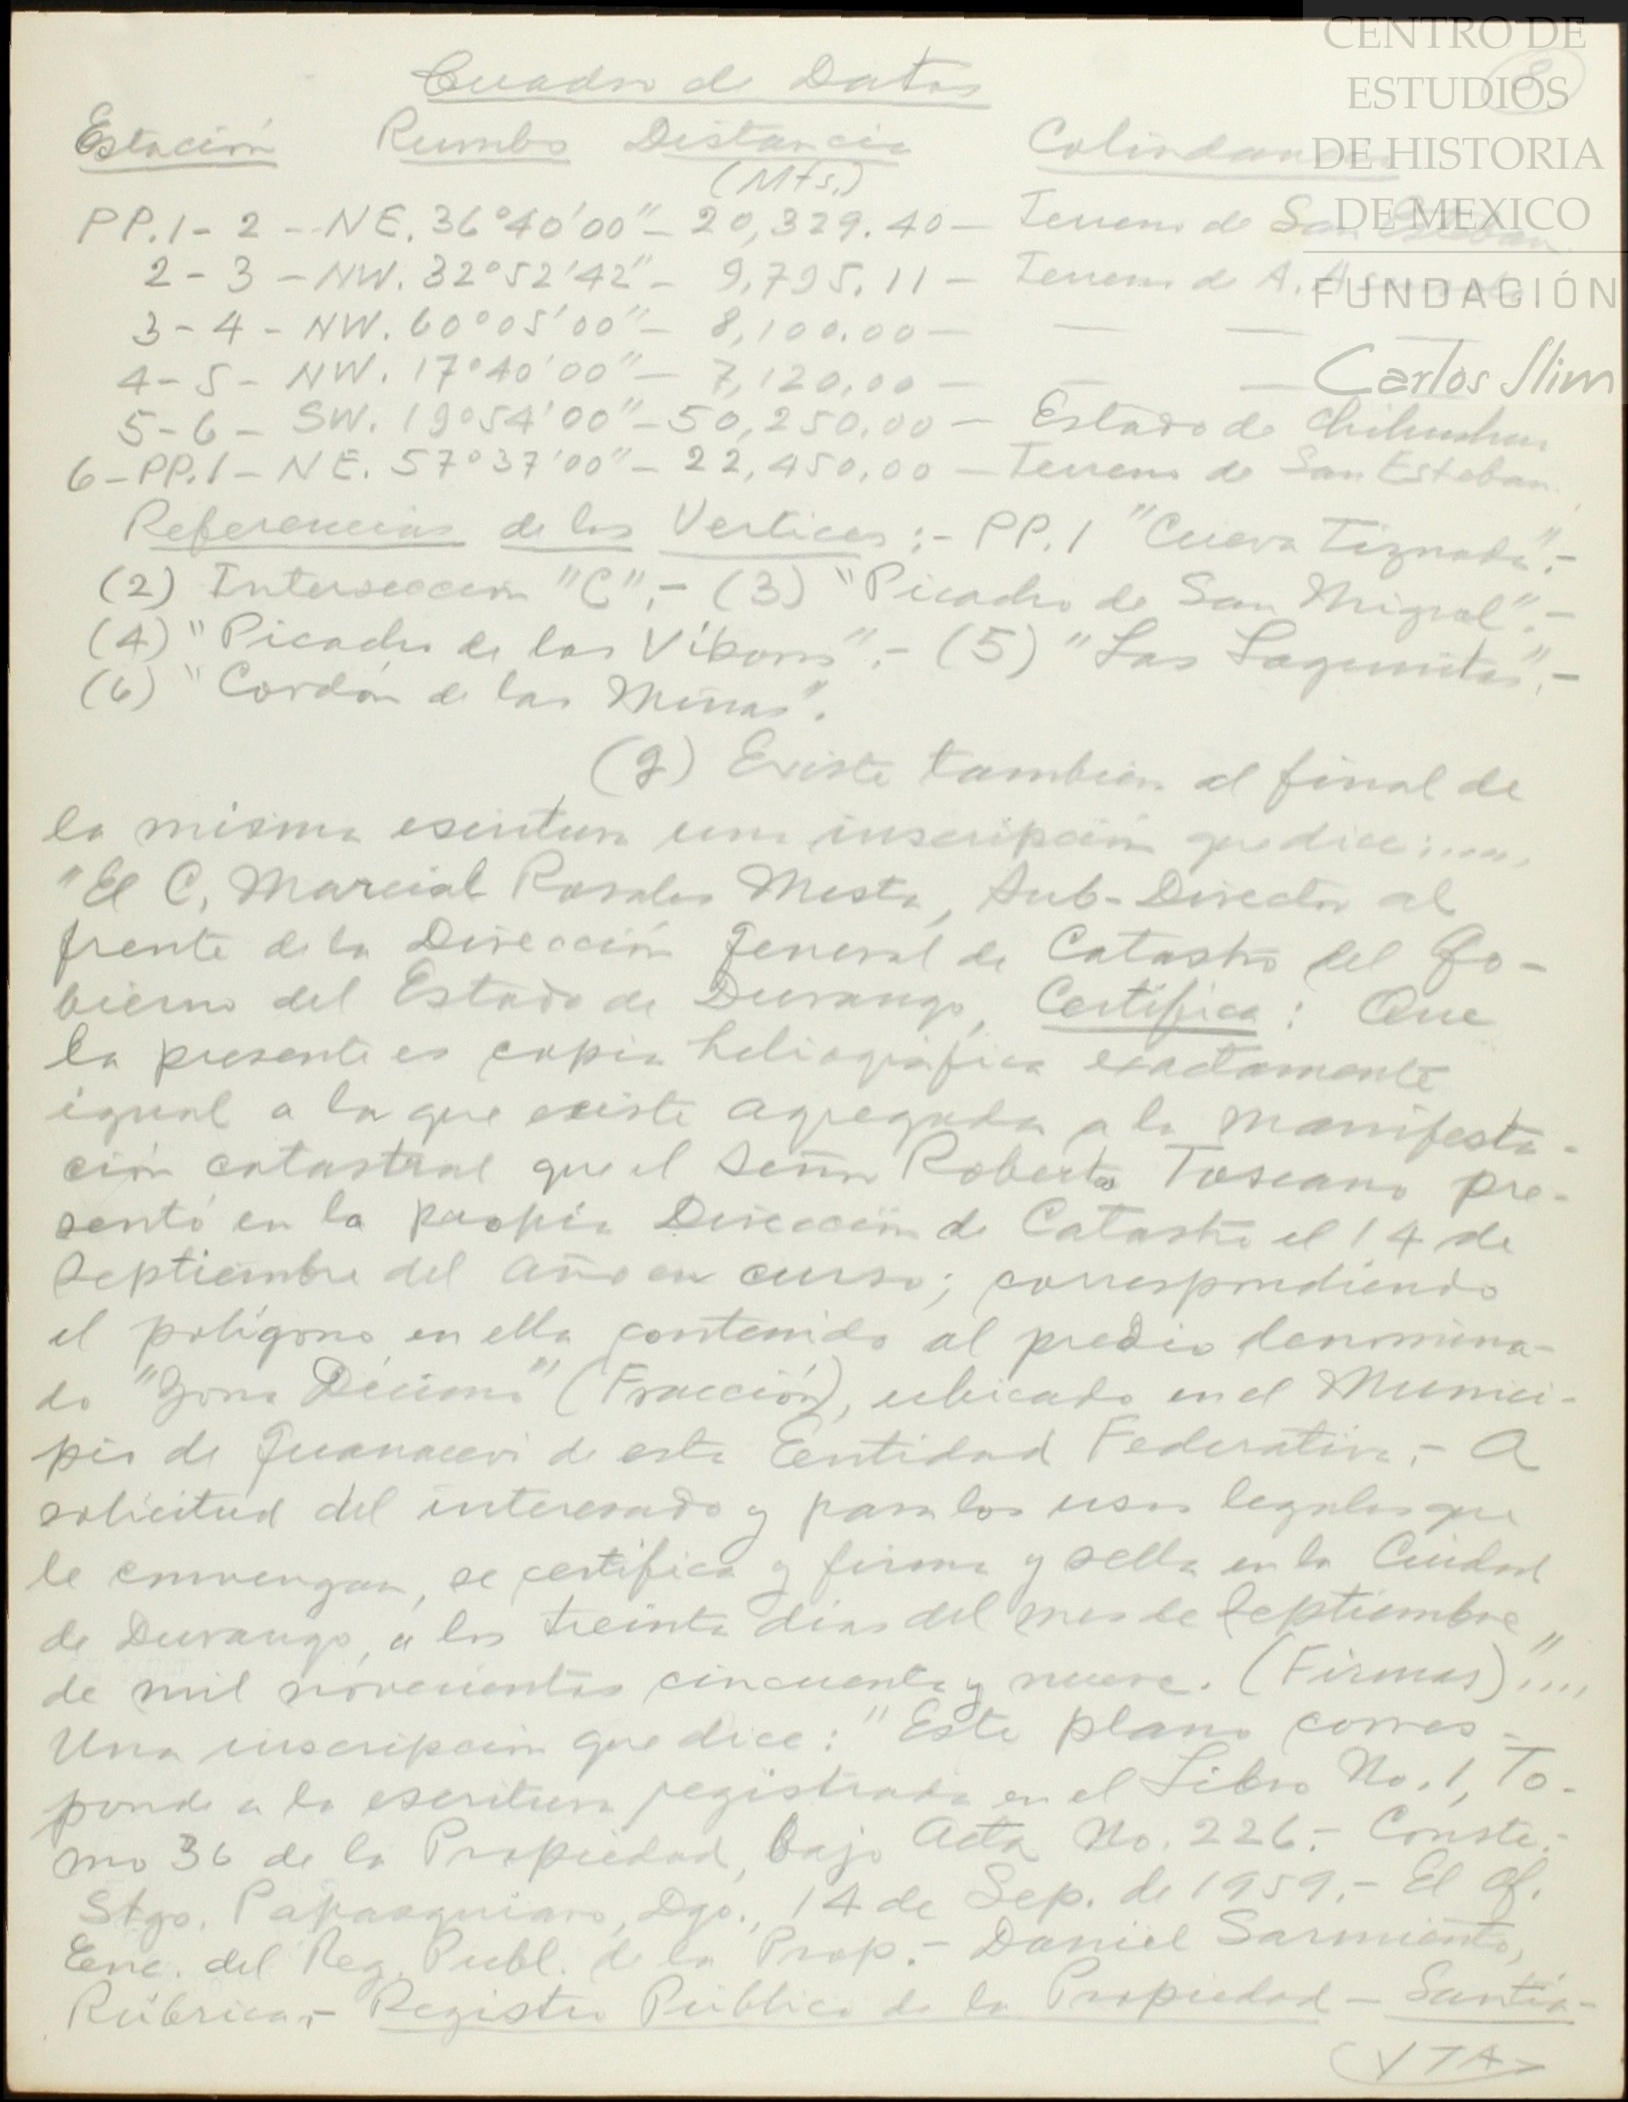 Cuadro de Datos
8
Estación Rumbo Distancia Colindancias
(Mts.)
PP.1 - 2 - NE. 36°40'00" - 20,329.40 - Terreno de San Esteban
2 - 3 - NW. 32°52'42" - 9,795.11 - Terreno de A.
3 - 4 - NW. 60°05'00" - 8,100.00 - — —
4 - 5 - NW. 17°40'00" - 7,120.00 - — —
5 - 6 - SW. 19°54'00" - 50,250.00 - Estado de Chihuahua
6 - PP.1 - NE. 57°37'00" - 22,450.00 - Terreno de San Esteban
Referencias de los Vertices :- PP.1 "Cueva Tiznada".-
(2) Interseccion "C".- (3) "Picacho de San Miguel".-
(4) "Picacho de las Víboras".- (5) "Las Lagunitas".-
(6) "Cordón de las Minas".
(g) Existe tambien al final de
la misma escritura una inscripción que dice:....
"El C. Marcial Rosales Mesta, Sub-Director al
frente de la Dirección General de Catastro del Go-
bierno del Estado de Durango, Certifica: Que
la presente es copia heliográfica exactamente
igual a la que existe agregada a la manifesta-
ción catastral que el Señor Roberto Toscano pre-
sentó en la propia Dirección de Catastro el 14 de
Septiembre del año en curso; correspondiendo
el polígono en ella contenido al predio denomina-
do "Zona Décima" (Fracción), ubicado en el Munici-
pio de Guanacevi de esta Entidad Federativa.- A
solicitud del interesado y para los usos legales que
le convengan, se certifica y firma y sella en la Ciudad
de Durango, a los treinta dias del mes de Septiembre
de mil novecientos cincuenta y nueve. (Firmas)"....
Una inscripción que dice: "Este plano corres-
ponde a la escritura registrada en el Libro No. 1, To-
mo 36 de la Propiedad, bajo Acta No. 226.- Conste.-
Stgo. Papasquiaro, Dgo., 14 de Sep. de 1959.- El Of.
Enc. del Reg. Publ. de la Prop.- Daniel Sarmiento,
Rúbrica.- Registro Público de la Propiedad - Santia-
(VTA>
CENTRO DE
ESTUDIOS
DE HISTORIA
DE MEXICO
FUNDACIÓN
Carlos Slim